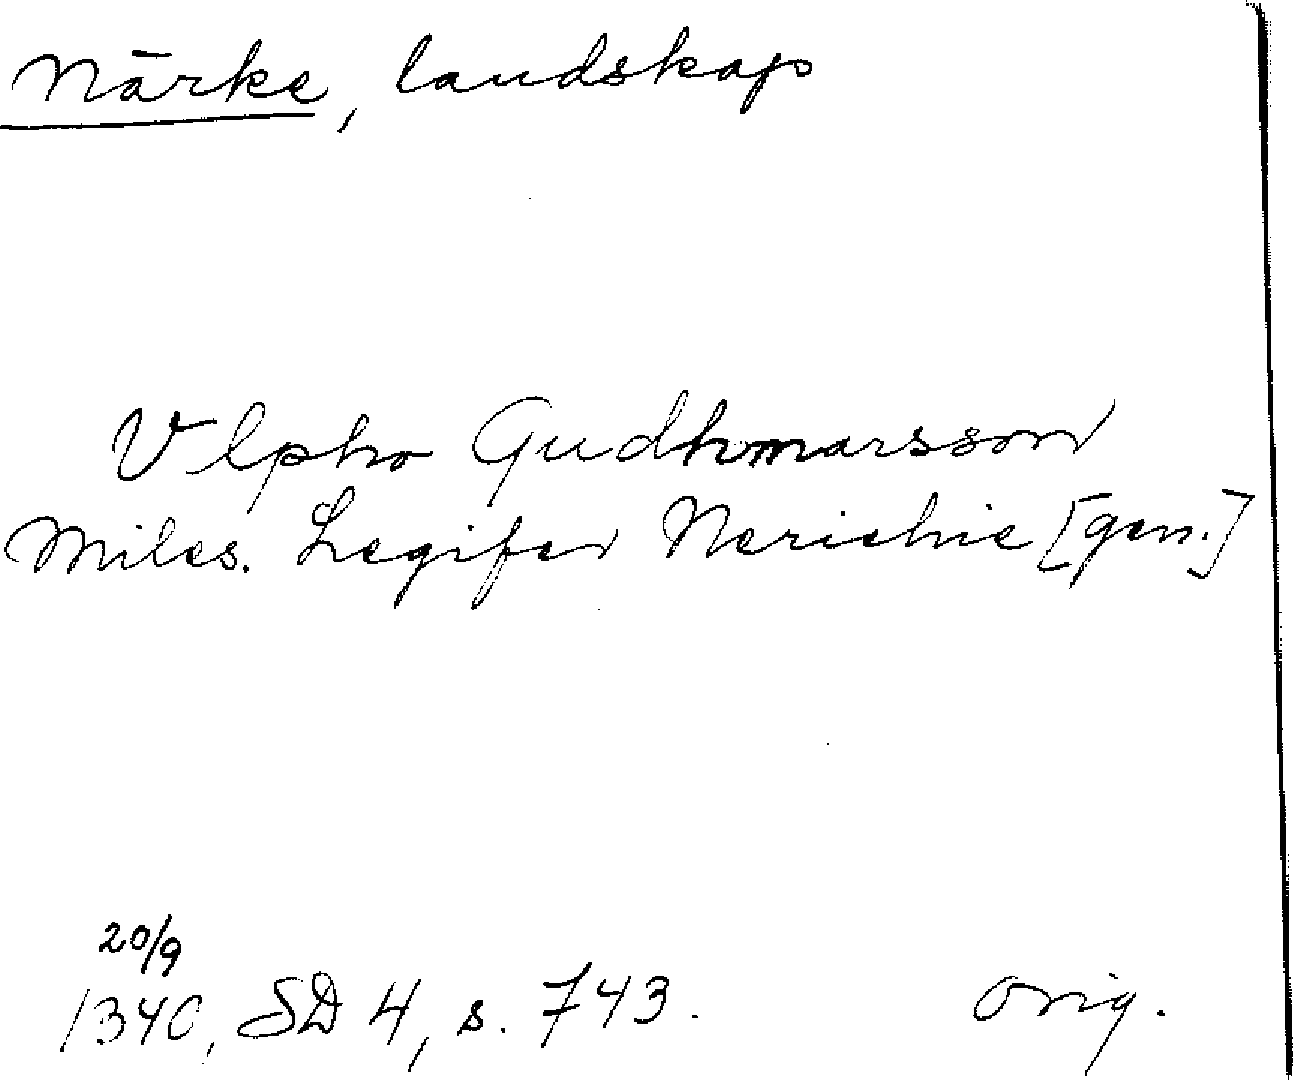 Närke, landskap
Vlpho Gudhmarsson
Miles. Legifer Nerichie [gen.]
20/9
1340, SD 4, s. 743.
Orig.